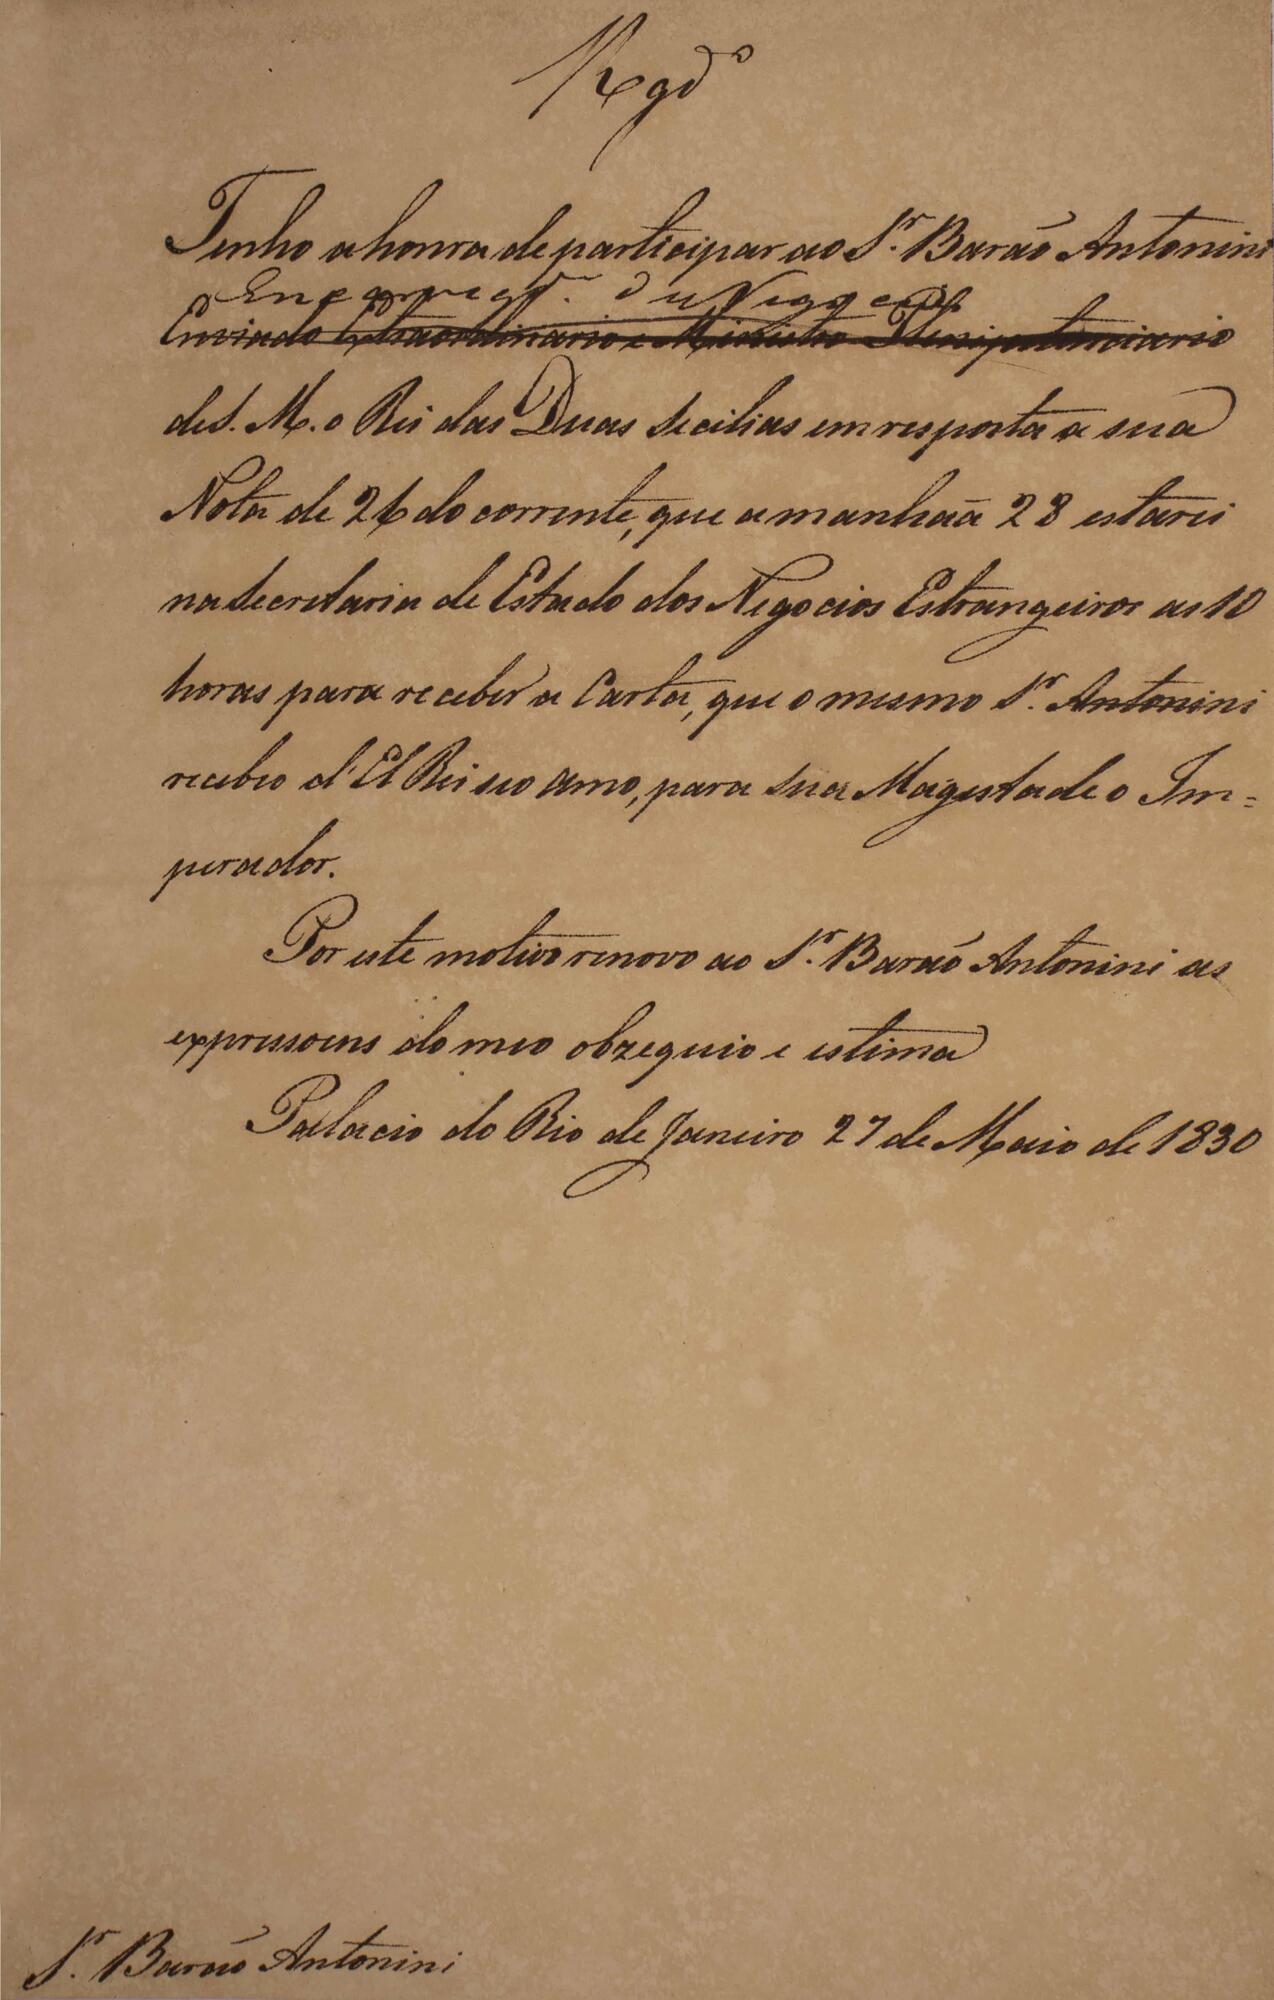 Regdo
Tenho a honra de participar ao Sr. Barão Antonini
Encarregdo. de Negocios
Enviado Extraordinario e Ministro Plenipotenciario
de S. M. o Rei das Duas Secilias em resposta a sua
Nota de 26 do corrente, que a manhaã 28 estarei
na Secretaria de Estado dos Negocios Estrangeiros as 10
horas para receber a Carta, que o mesmo Sr. Antonini
recebeo d'El Rei seo amo, para Sua Magestade o Im=
perador.
Por este motivo renovo ao Sr. Barão Antonini as
expressoens do meo obzequio e estima
Palacio do Rio de Janeiro 27 de Maio de 1830
Sr. Barão Antonini